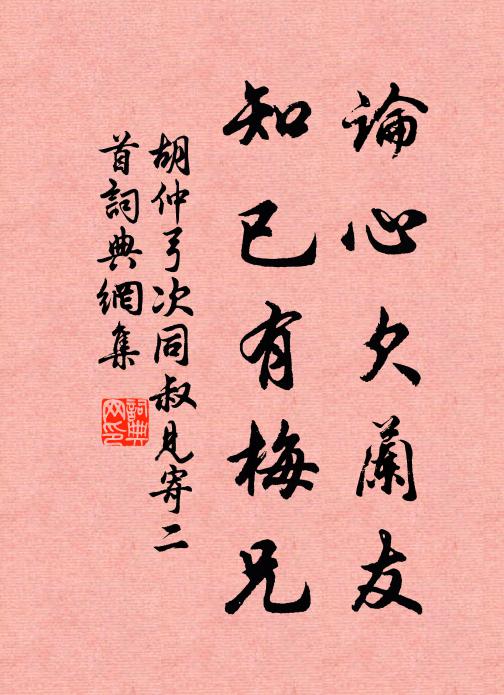 論心欠蘭友
知已有梅兄
胡仲弓次同叔見寄二
首詞典網集
詞典
网印